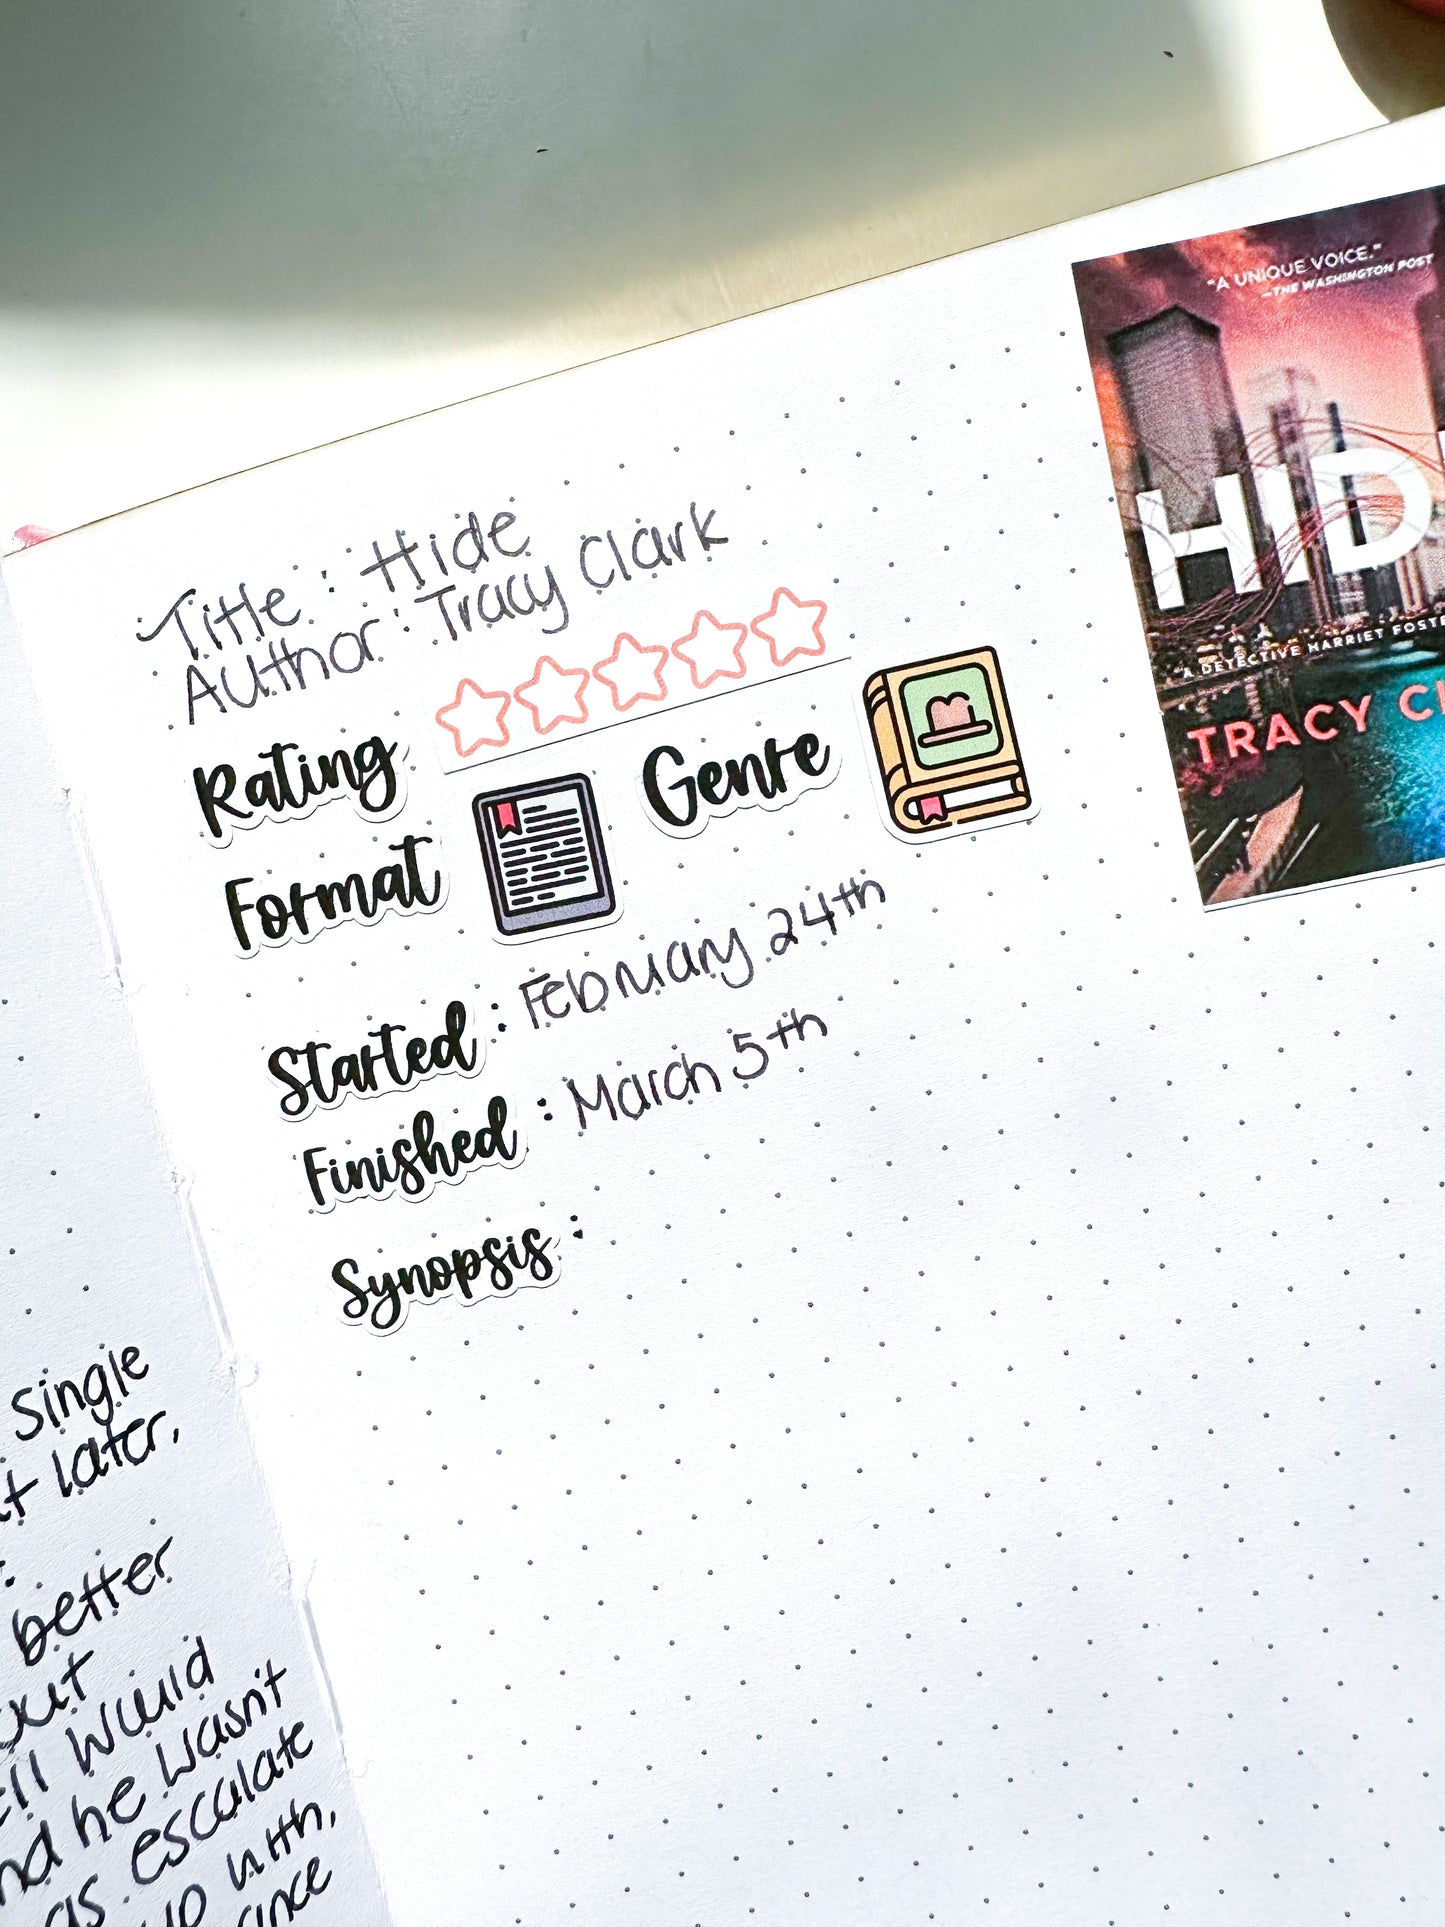 Title : Hide
Author : Tracy Clark
Rating
Genre
Format
Started : February 24th
Finished : March 5th
Synopsis :
"A UNIQUE VOICE."
—THE WASHINGTON POST
HID
A DETECTIVE HARRIET FOSTE
TRACY CL
single
t later,
better
out
ell would
nd he wasn't
as escalate
up with,
ance